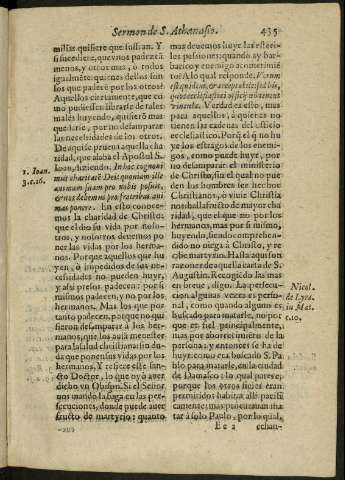 Sermon de S. Athanasio. 435
millias quisiere que sufran. Y
si sucediere, que vnos padezcã
menos, y otros mas, o todos
igualmẽte: quienes dellos son
los que padecẽ por los otros?
Aquellos ciertamente, que co-
mo pudiessen librarse de tales
males huyendo, quisierõ mas
quedarse, por no desamparar
las necessidades de los otros.
De aqui se prueua aquella cha-
ridad, que alaba el Apostol S.
Ioan, diziendo. In hoc cognoui-
mus charitatẽ Dei: quoniam ille
animam suam pro nobis posuit,
& nos debemus pro fratribus ani-
mas ponere. En esto conoce-
mos la charidad de Christo:
que el dio su vida por noso-
tros, y nosotros deuemos po-
ner las vidas por los herma-
nos. Porque aquellos que hu
yen, ô impedidos de sus ne-
cessidades no pueden huyr,
y assi presos padecen: por si
mismos padecen, y no por los
hermanos. Mas los que por
tanto padecen, porque no qui
sieron desamparar â los her-
manos, que los auiã menester
para la salud christiana: sin du-
da que ponen sus vidas por los
hermanos. Y refiere este san-
cto Doctor, lo que oyô auer
dicho vn Obispo. Si el Señor
nos manda la fuga en las per-
secuciones, donde puede auer
fructo de martyrio; quanto
1. Ioan.
3. c. 16.
mas deuemos huyr las esteri-
les passiones: quando ay bar-
barico y enemigo acometimiẽ
to? A lo qual responde. Verum
est quidem,
Verdad es esto, mas
para aquellos, â quienes no
tienen las cadenas del officio
ecclesiastico. Porq̃ el q̃ no hu
ye los estragos de los enemi-
gos, como puede huyr, por
no desamparar el ministerio
de Christo, sin el qual no pue
den los hombres ser hechos
Christianos, o viuir Christia
nos: halla fructo de mayor cha
ridad, que el que no por los
hermanos, mas por si mismo,
huyendo, siendo comprehen-
dido no niega â Christo, y re
cibe martyrio. Hasta aqui son
razones de aquella carta de S.
Augustin. Recogidas las mas
en breue, digo. La persecu-
cion algunas vezes es perso-
nal, como quando alguno es
buscado para matarle, no por
que es fiel principalmente,
mas por aborrecimiẽto de la
persona: y entonces se ha de
huyr: como era buscado S. Pa
blo para matarle, en la ciudad
de Damasco: lo qual passô,
porque los otros fieles eran
permitidos habitar alli pacifi
camente; mas procurauan ma
tar â solo Paulo, por lo qual,
Nicol.
de Lyra.
in Mat.
c. 10.
Ee 2 echan-